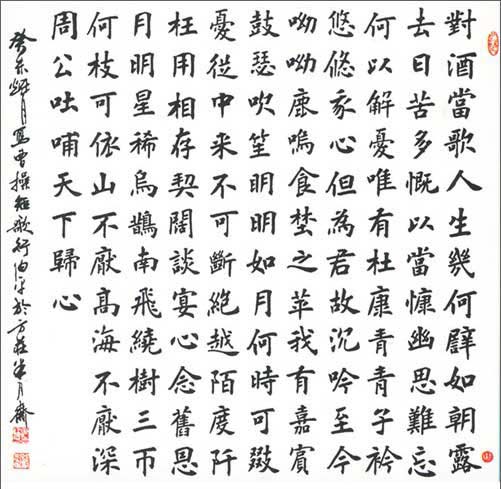 對酒當歌人生幾何譬如朝露
去日苦多慨以當慷幽思難忘
何以解憂唯有杜康青青子衿
悠悠我心但為君故沉吟至今
呦呦鹿鳴食埜之苹我有嘉賓
鼓瑟吹笙明明如月何時可掇
憂從中来不可斷絕越陌度阡
枉用相存契闊談宴心念舊恩
月明星稀烏鵲南飛繞樹三帀
何枝可依山不厭高海不厭深
周公吐哺天下歸心
癸未月寫曹操短歌行於方莊半月齋